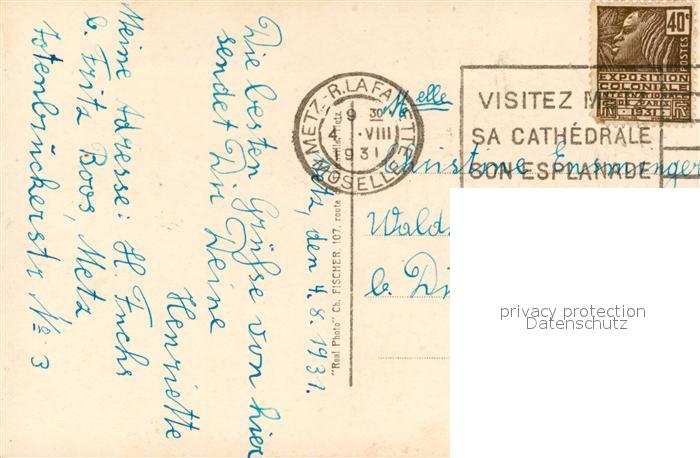 Metz, den 4.8.1931.
Die besten Grüsse von hier
sendet Dir Deine
Henriette
Meine Adresse: H. Fuchs
b. Fritz Boos, Metz
Totenbrückerstr No 3
"Real Photo" Ch. FISCHER, 107, route
METZ - R. LAFAYETTE
9 30
4 - VIII
1931
MOSELLE
VISITEZ METZ
SA CATHÉDRALE
SON ESPLANADE
40c
POSTES
EXPOSITION
COLONIALE
INTERNATIONALE
DE PARIS
1931
Melle
Christiane
b
privacy protection
Datenschutz